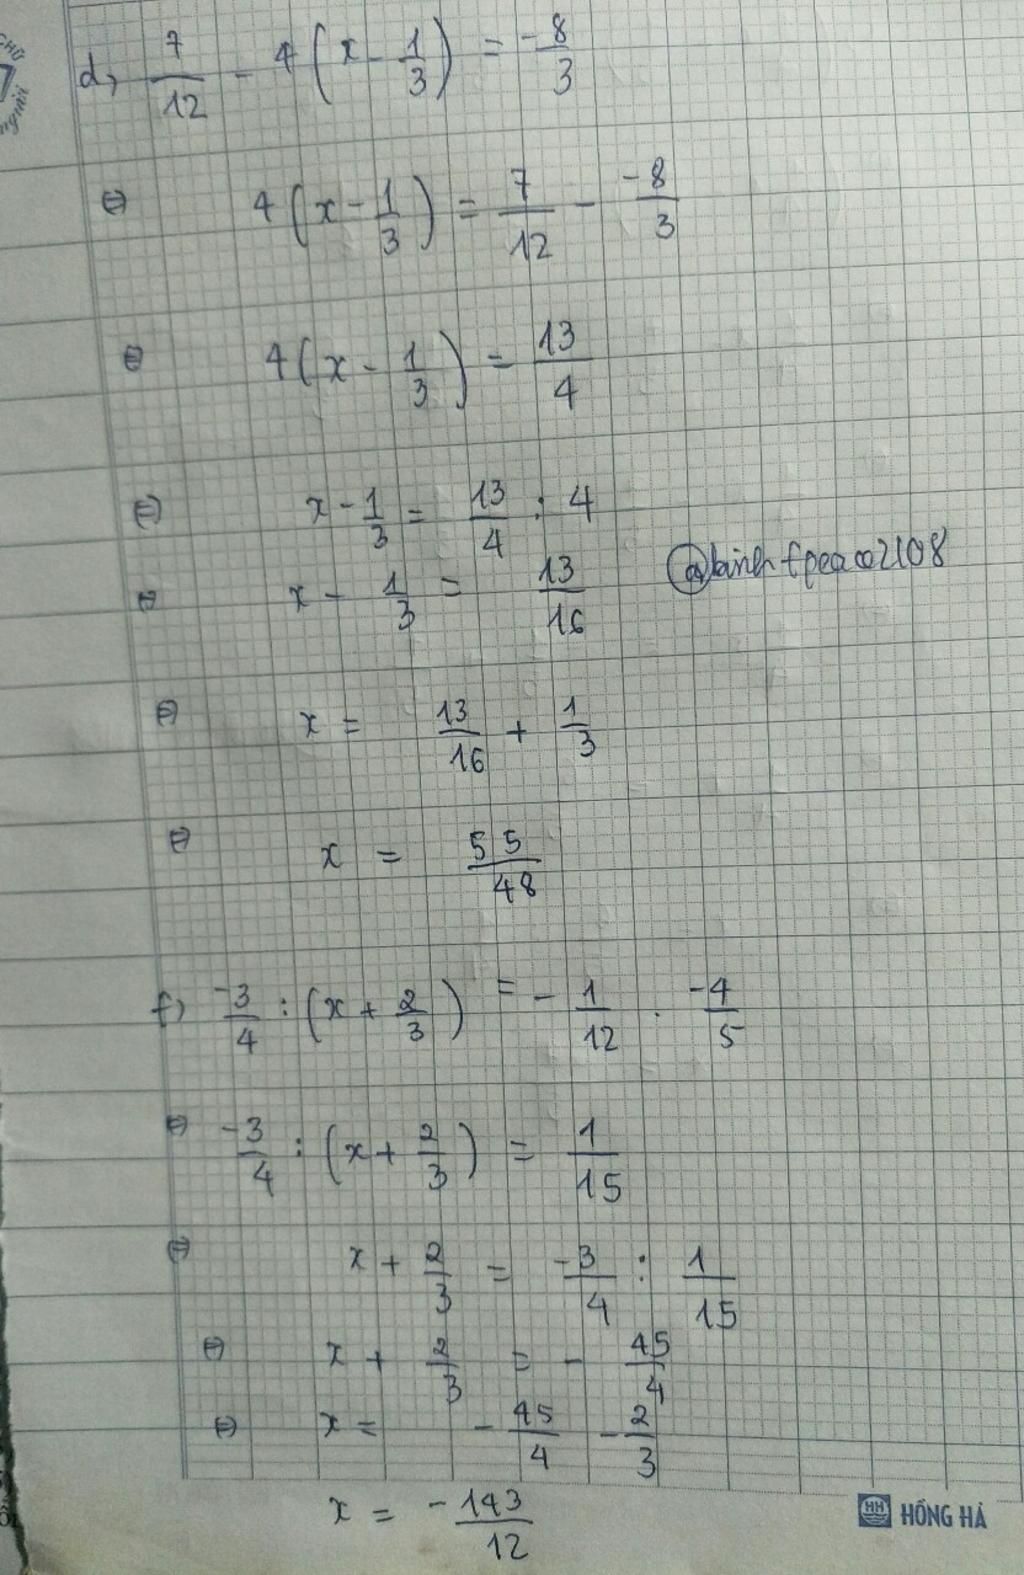 d, 7/12 - 4(x - 1/3) = -8/3
⇔ 4(x - 1/3) = 7/12 - -8/3
⇔ 4(x - 1/3) = 13/4
⇔ x - 1/3 = 13/4 : 4
⇔ x - 1/3 = 13/16
⇔ x = 13/16 + 1/3
⇔ x = 55/48
f) -3/4 : (x + 2/3) = - 1/12 . -4/5
⇔ -3/4 : (x + 2/3) = 1/15
⇔ x + 2/3 = -3/4 : 1/15
⇔ x + 2/3 = - 45/4
⇔ x = - 45/4 - 2/3
x = - 143/12
HH HỒNG HÀ